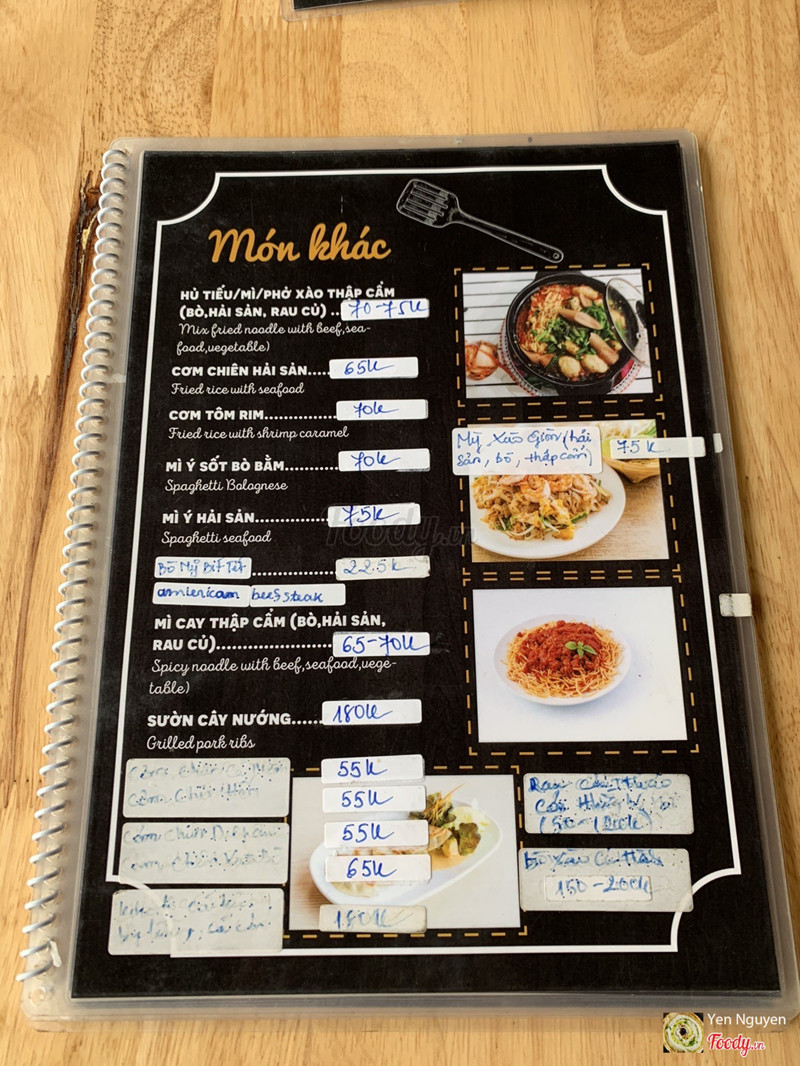 Món khác
HỦ TIẾU/MÌ/PHỞ XÀO THẬP CẨM
(BÒ,HẢI SẢN, RAU CỦ) .. 70-75K
Mix fried noodle with beef,sea-
food,vegetable)
CƠM CHIÊN HẢI SẢN..... 65K
Fried rice with seafood
CƠM TÔM RIM............... 70K
Fried rice with shrimp caramel
MÌ Ý SỐT BÒ BẰM........... 70K
Spaghetti Bolognese
MÌ Ý HẢI SẢN............... 75K
Spaghetti seafood
Bò Mỹ Bít Tết .............. 225K
amienicam beefsteak
MÌ CAY THẬP CẨM (BÒ,HẢI SẢN,
RAU CỦ)..................... 65-70K
Spicy noodle with beef,seafood,vege-
table)
SƯỜN CÂY NƯỚNG...... 180K
Grilled pork ribs
Mỳ Xào Giòn (hải
sản, bò, thập cẩm) 75K
55K
55K
Cơm Chiên 55K
Cơm Chiên 65K
180K
Rau Củ
(50-100K)
Bò Xào
150-200K
Foody.vn
Yen Nguyen
Foody.vn